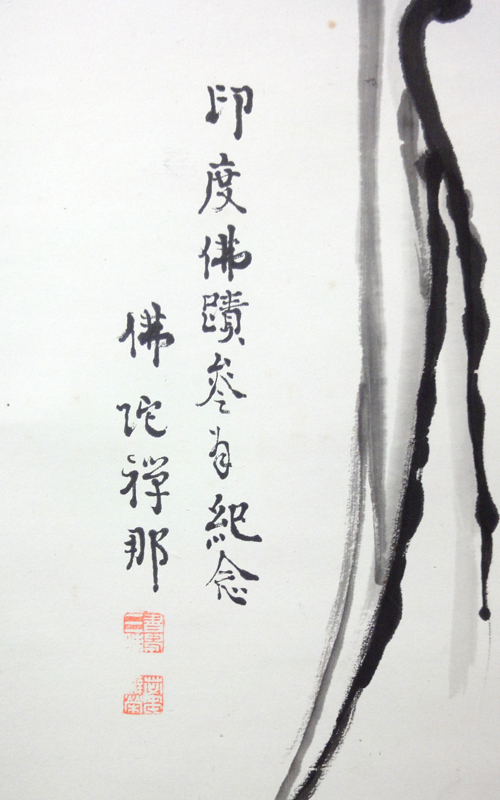 印度佛蹟参拝紀念
佛陀禅那